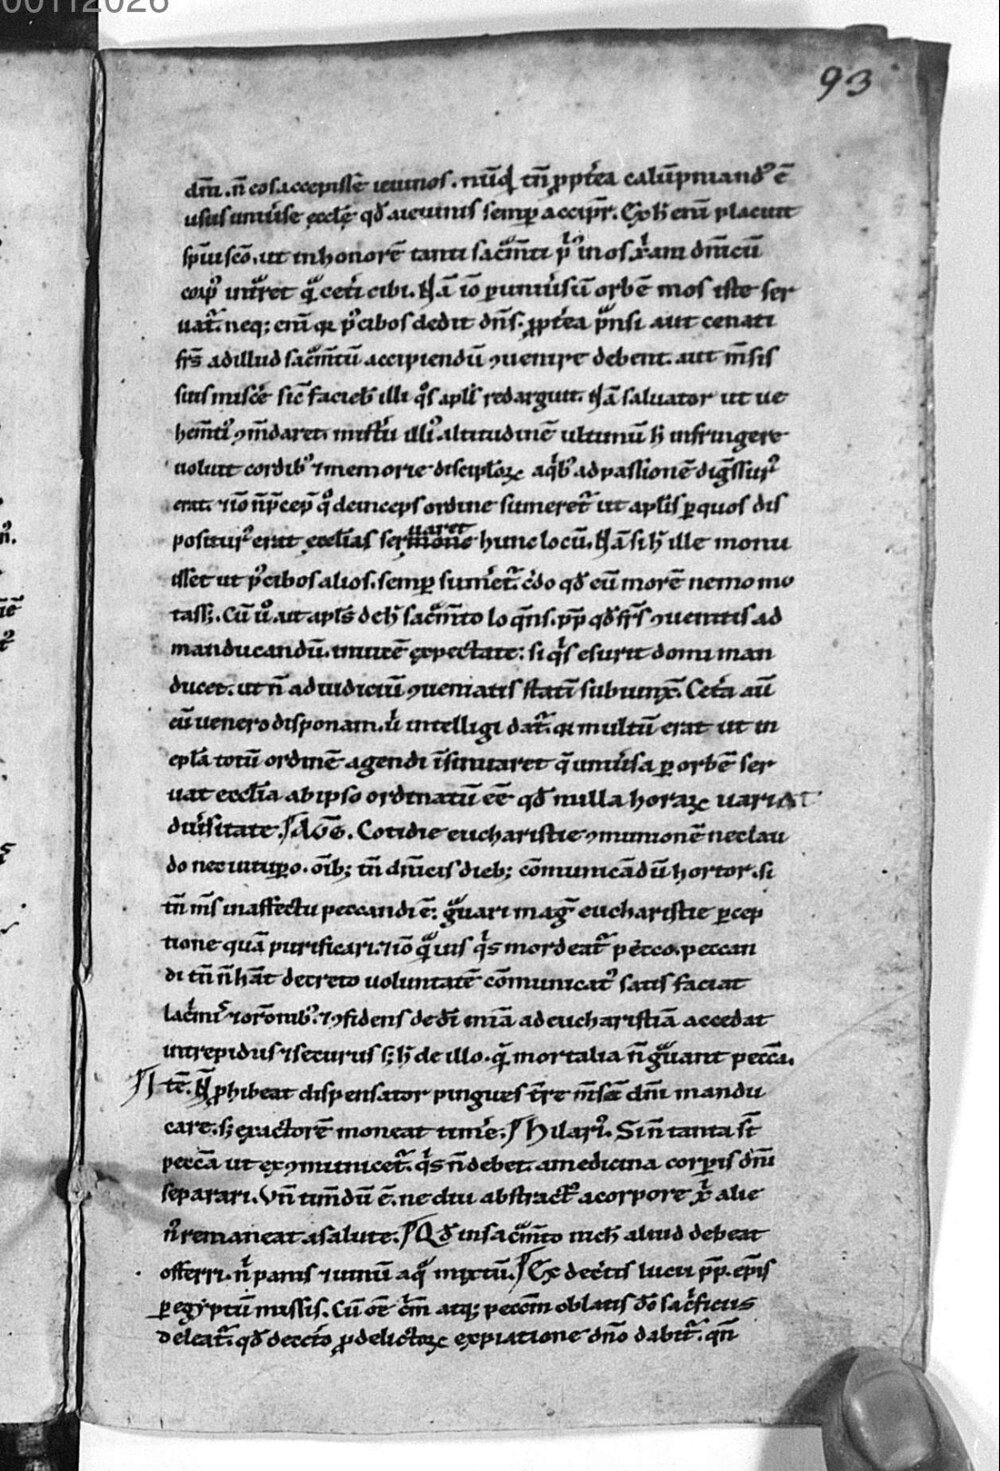 93
dn̄i. n̄ eos accepisse ieiunos. nūqͥd tn̄ ꝓpt̉ea calūpniandꝰ ē
usus uniủse eccłę qđ a ieiunis semꝑ accipit̃. Ex h̄ enī placuit
spūi scō. ut in honorē tanti sac̃m̄ti pͥꝰ in os xͥani dn̄icū
corpꝰ intͣret qͣ cet̉i cibi. Nā iō ꝑ uniủsū orbē mos iste ser
uat̃. neqꝫ enī qͥ pꝰ cibos dedit dn̄s. ꝓpt̉ea pͣnsi aut cenati
frs̄ ad illud sac̃m̄tū accipiendū ꝯuenire debent. aut m̄sis
suis misc̉e sic̄ facieƀ illi qͦs apłs redarguit. Nā saluator ut ue
hem̄tiꝰ ꝯm̄daret. mist̉ii illiꝰ altitudinē ultimū h̄ infringere
uoluit cordibꝰ ⁊ memorie discipuloꝝ a qͥbꝰ ad passionē dig̃ssurꝰ
erat. ⁊ iō n̄ p̄cep̄ qͦ deinceps ordine sumeret̃ ut aplis̄ ꝑ quos dis
positurꝰ erat ecclīas seruaret hunc locū. Nā si h̄ ille monu
isset ut pꝰ cibos alios. semꝑ sum̉et̃. c̉do qđ eū morē nemo mu
tass̉. Cū uͦ. ait apłs de h̄ sac̃m̄to loqͣns. pp̄ qđ frs̄ ꝯuenitis ad
manducandū. inuicē expectate: si qͥs esurit domi man
ducet. ut n̄ ad iudiciū ꝯueniatis statī subiunx̄. Cet̉a aū
cū uenero disponam. uͥ intelligi dat̃. qͥ multū erat ut in
epła totū ordinē agendi īsinuaret q̄ uniủsa ꝑ orbē ser
uat ecclīa ab ipso ordinatū eē qđ nulla horaꝝ uariat
diủsitate. AUḠ. Cotidie eucharistie ꝯmunionē nec lau
do nec uitupꝑo. oīƀꝫ tn̄ dn̄icis dieƀꝫ cōmunicādū hortor. si
tn̄ m̄s in affectu peccandi ē: gͣuari magͥ eucharistie ꝑcep
tione quā purificari. ⁊ iō qͣuis qͥs mordeat̃ pc̄co. peccan
di tn̄ n̄ hāt decreto uoluntatē cōmunicatꝰ satis faciat
lac̉mͥs ⁊ orōnibꝰ. ⁊ ꝯfidens de dī mīa ad eucharistiā accedat
intrepidus ⁊ securus sꝫ h̄ de illo. qͥ mortalia n̄ gͣuant pecc̄a.
Itē. N̄ ꝓhibeat dispensator pingues t̉re m̄sā dn̄i mandu
care. sꝫ exactorē moneat tim̉e. Hilariꝰ. Si n̄ tanta st̄
pecc̄a ut excōmunicet̃ qͥs n̄ debet. a medicina corpīs dn̄i
separari. Vn̄ tim̄dū ē. ne diu abstractꝰ a corpore xͥ alie
nꝰ remaneat a salute. Qđ in sac̃m̄to nich̄ aliud debeat
offerri. nͥ panis ⁊ uinū aqͣ mixtū. Ex dec̉tis Iulii pp̄. ep̄is
ꝑ egyptū missis. Cū oē cͥm̄ atqꝫ peccm̄ oblatis dō sac̉ficiis
deleat̃. qđ de cet̉o ꝓ delictoꝝ expiatione dn̄o dabit̃. qn̄